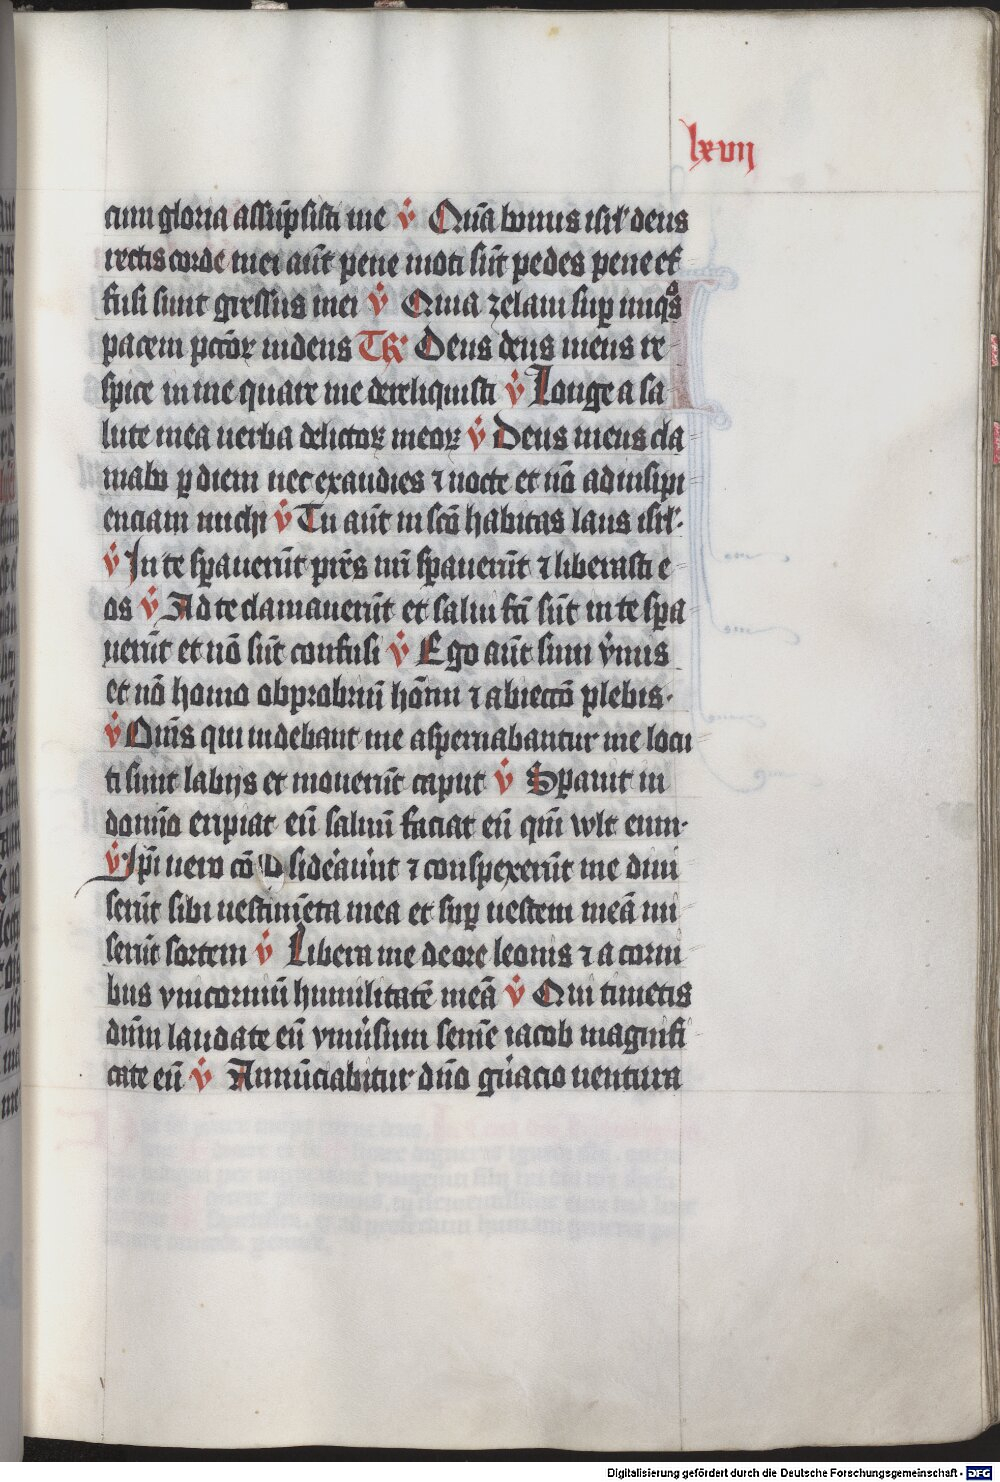 lxvij
cum gloria assūpsisti me v̇ Quā bonus isrl' deus
rectis corde mei aūt pene moti sūt pedes pene ef
fusi sunt gressus mei v̇ Quia zelaui sup iniqˢ
pacem pctōꝝ uidens Tr̄ Deus deus meus re
spice in me quare me dereliquisti v̇ Longe a sa
lute mea uerba delictoꝝ meoꝝ v̇ Deus meus cla
mabo ꝑ diem nec exaudies ⁊ nocte et nō ad insipi
enciam michi v̇ Tu aūt in scō habitas laus isrl'.
v̇ In te spauerūt prēs nri spauerūt ⁊ liberasti e
os v̇ Ad te clamauerūt et salui fcī sūt in te spa
uerūt et nō sūt confusi v̇ Ego aūt sum v̇mis
et nō homo obprobriū hōīnū ⁊ abiectō plebis.
v̇ Om̄s qui uidebant me aspernabantur me locu
ti sunt labijs et mouerūt caput v̇ Sperauit in
domīo eripiat eū saluū faciat eū qm̄ wlt eum.
v̇ Ipi uero cō sideraūnt ⁊ conspexerūt me diui
serūt sibi uestimēta mea et sup uestem meā mi
serūt sortem v̇ Libera me de ore leonis ⁊ a corni
bus vnicorniū humilitatē meā v̇ Qui timetis
dūm laudate eū vniūsum semē iacob magnifi
cate eū v̇ Annūciabitur dn̄o gn̄acio uentura
Digitalisierung gefördert durch die Deutsche Forschungsgemeinschaft - DFG